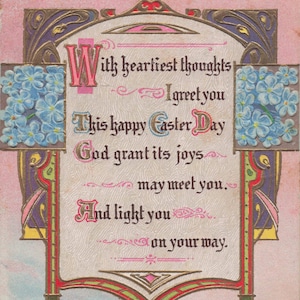 With heartiest thoughts
I greet you
This happy Easter Day
God grant its joys
may meet you.
And light you
on your way.